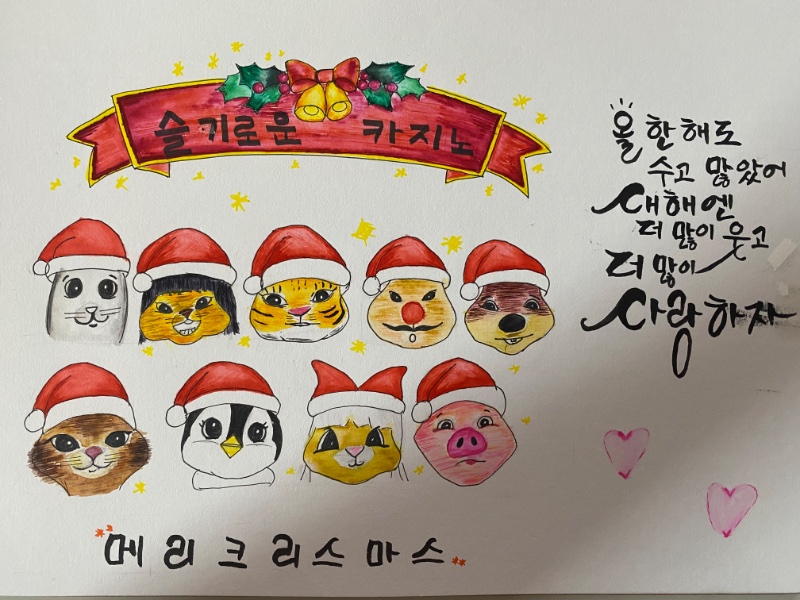 슬기로운 카지노
올 한해도
수고 많았어
새해엔
더 많이 웃고
더 많이
사랑하자
메리크리스마스